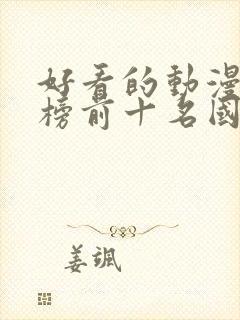 好看的動漫
榜前十名國
姜颯